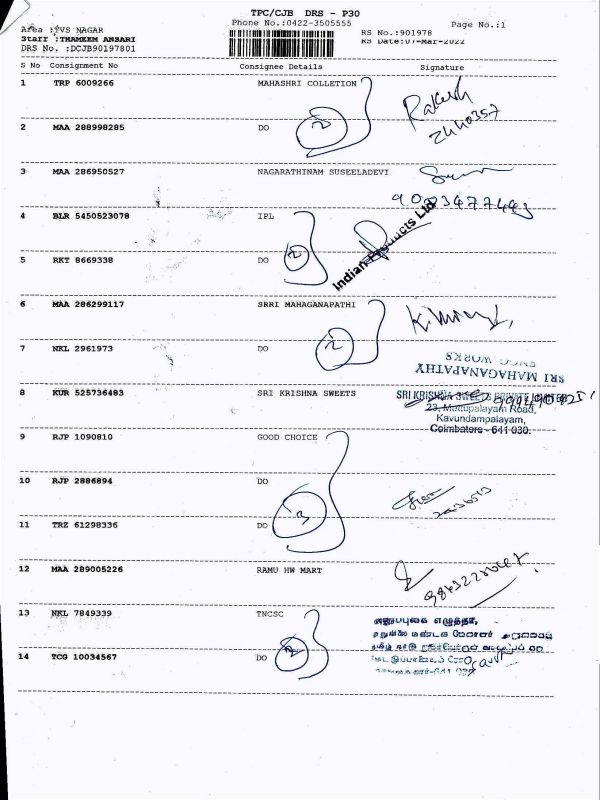 TPC/CJB DRS - P30
Phone No.:0422-3505555
Page No.:1
Area :TVS NAGAR
RS No.:901978
Staff :THAMEEM ANSARI
RS Date:07-Mar-2022
DRS No. :DCJB90197801
S No Consignment No Consignee Details Signature
1 TRP 6009266 MAHASHRI COLLETION Rakesh
2440357
2 MAA 288998285 DO 2
3 MAA 286950527 NAGARATHINAM SUSEELADEVI
4 BLR 5450523078 IPL
Indian Products Ltd
5 RKT 8669338 DO 2
6 MAA 286299117 SRRI MAHAGANAPATHI
7 NKL 2961973 DO 2
SRI MAHAGANAPATHY
ENGG WORKS
8 KUR 525736483 SRI KRISHNA SWEETS SRI KRISHNA SWEETS PRIVATE LIMITED
23, Mettupalayam Road,
Kavundampalayam,
Coimbatore - 641 030.
9 RJP 1090810 GOOD CHOICE
10 RJP 2886894 DO
11 TRZ 61298336 DO 3
12 MAA 289005226 RAMU HW MART
13 NKL 7849339 TNCSC
14 TCG 10034567 DO 2